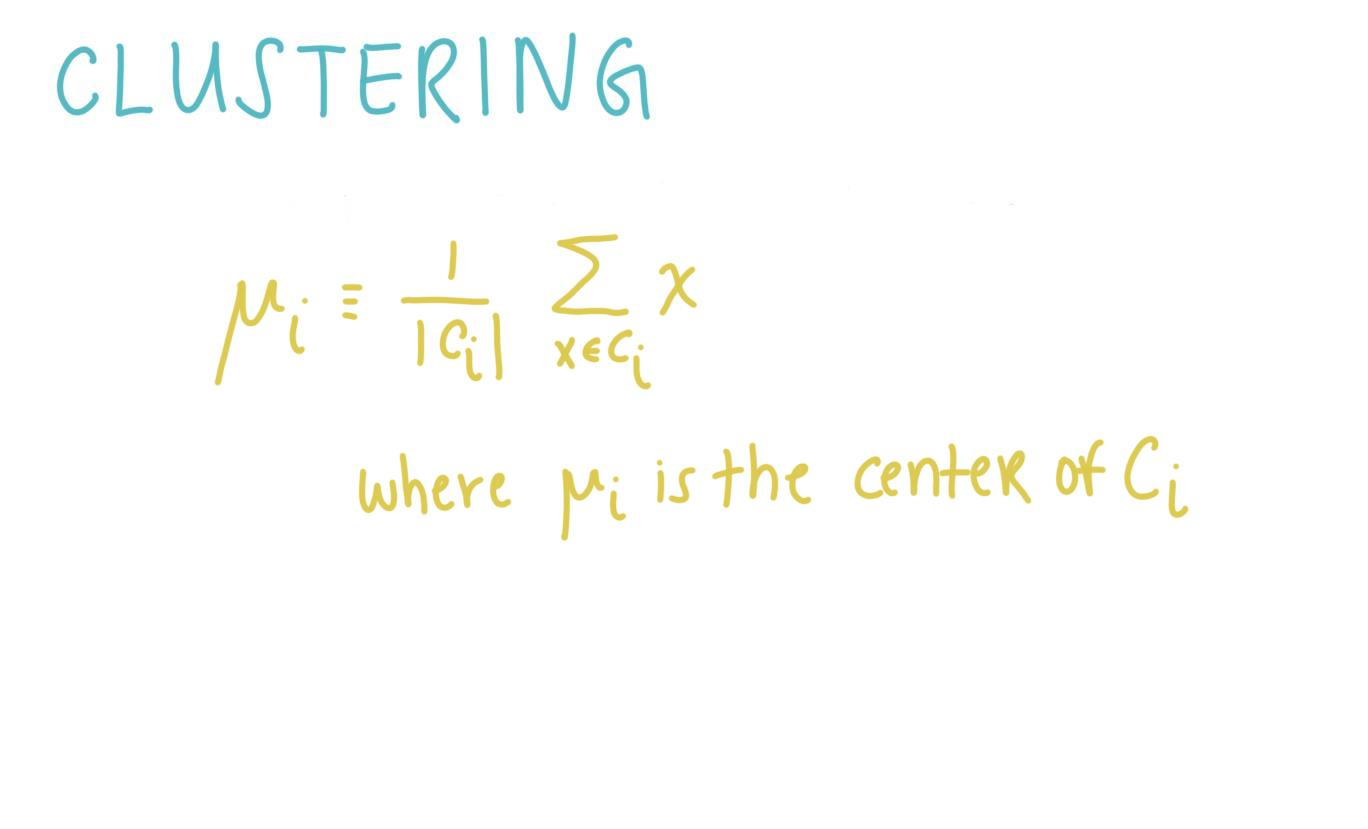 CLUSTERING
μᵢ ≡ 1/|Cᵢ| ∑_{x∈Cᵢ} x
where μᵢ is the center of Cᵢ